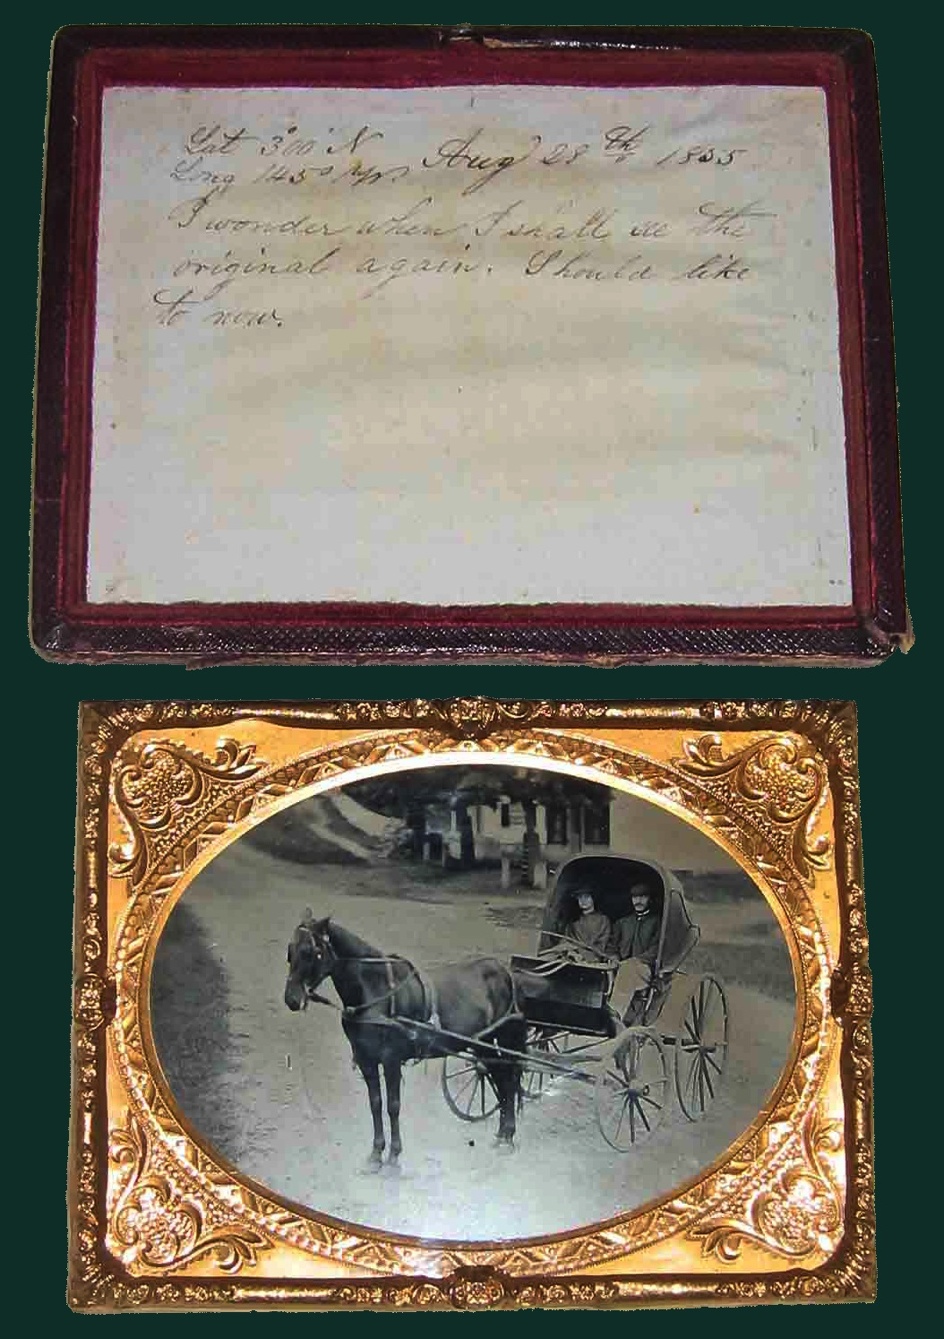 Lat 3°00' N Aug 28th 1855
Long 145°
I wonder when I shall see the
original again. Should like
to now.